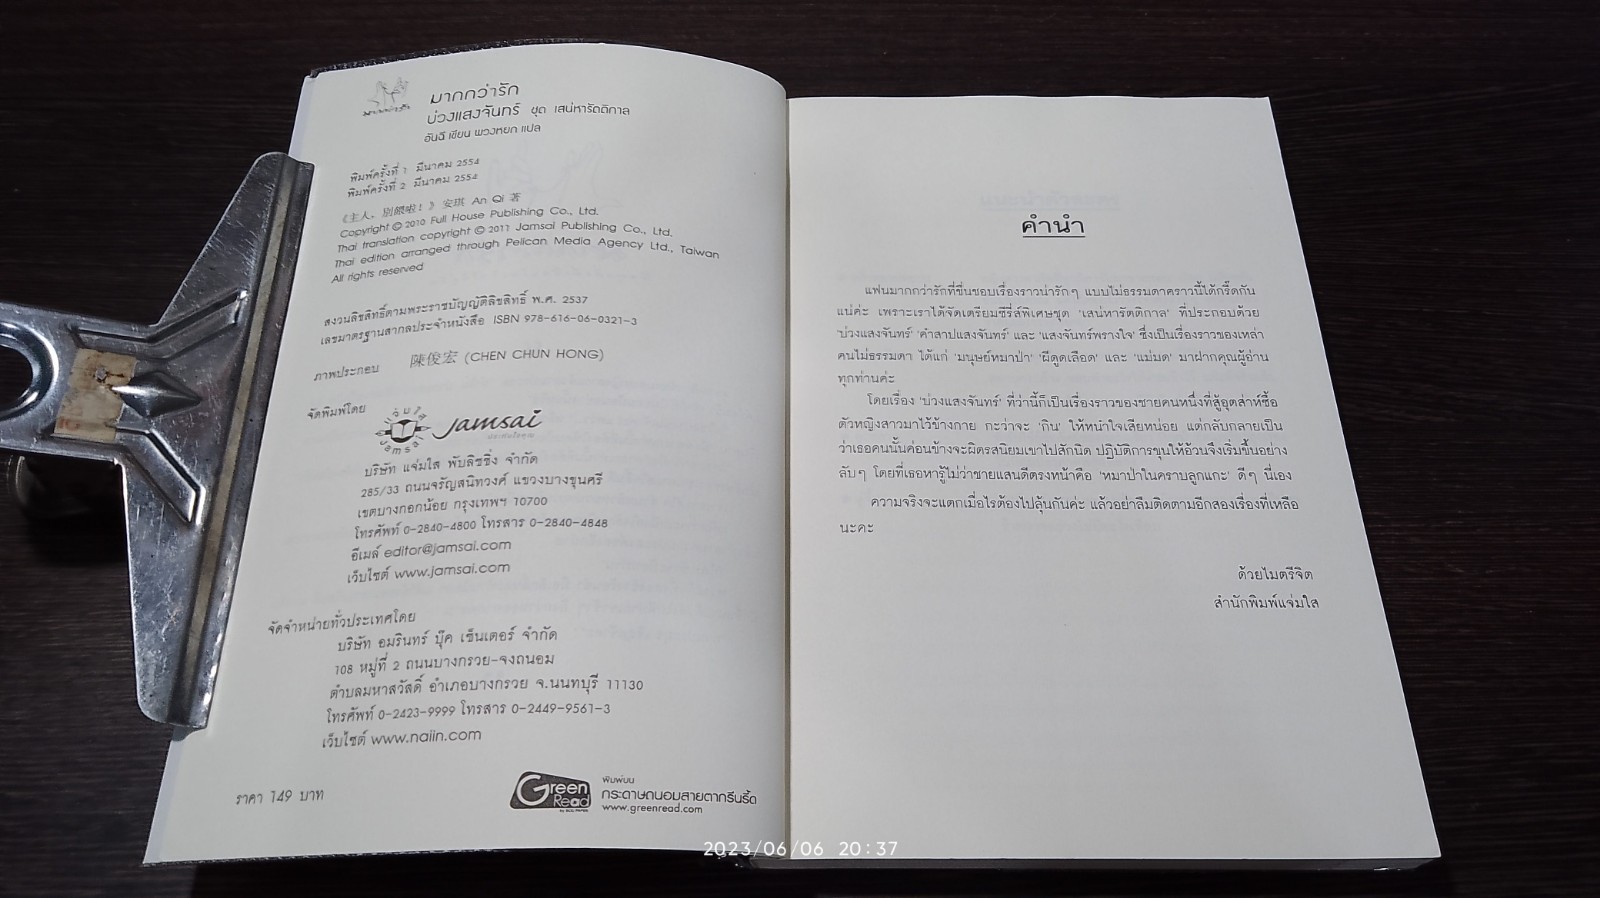 มากกว่ารัก
บ่วงแสงจันทร์ ชุด เสน่หารัตติกาล
อันฉี เขียน พวงหยก แปล
พิมพ์ครั้งที่ 1 มีนาคม 2554
พิมพ์ครั้งที่ 2 มีนาคม 2554
《主人，別餵啦！》安琪 An Qi 著
Copyright © 2010 Full House Publishing Co., Ltd.
Thai translation copyright © 2011 Jamsai Publishing Co., Ltd.
Thai edition arranged through Pelican Media Agency Ltd., Taiwan
All rights reserved
สงวนลิขสิทธิ์ตามพระราชบัญญัติลิขสิทธิ์ พ.ศ. 2537
เลขมาตรฐานสากลประจำหนังสือ ISBN 978-616-06-0321-3
ภาพประกอบ 陳俊宏 (CHEN CHUN HONG)
จัดพิมพ์โดย
jamsai
บริษัท แจ่มใส พับลิชชิ่ง จำกัด
285/33 ถนนจรัญสนิทวงศ์ แขวงบางขุนศรี
เขตบางกอกน้อย กรุงเทพฯ 10700
โทรศัพท์ 0-2840-4800 โทรสาร 0-2840-4848
อีเมล์ editor@jamsai.com
เว็บไซต์ www.jamsai.com
จัดจำหน่ายทั่วประเทศโดย
บริษัท อมรินทร์ บุ๊ค เซ็นเตอร์ จำกัด
108 หมู่ที่ 2 ถนนบางกรวย-จงถนอม
ตำบลมหาสวัสดิ์ อำเภอบางกรวย จ.นนทบุรี 11130
โทรศัพท์ 0-2423-9999 โทรสาร 0-2449-9561-3
เว็บไซต์ www.naiin.com
ราคา 149 บาท
Green
Read
พิมพ์บน
กระดาษถนอมสายตากรีนรี้ด
www.greenread.com
คำนำ
แฟนมากกว่ารักที่ชื่นชอบเรื่องราวน่ารักๆ แบบไม่ธรรมดาคราวนี้ได้กรี๊ดกัน
แน่ค่ะ เพราะเราได้จัดเตรียมซีรี่ส์พิเศษชุด 'เสน่หารัตติกาล' ที่ประกอบด้วย
'บ่วงแสงจันทร์' 'คำสาปแสงจันทร์' และ 'แสงจันทร์พรางใจ' ซึ่งเป็นเรื่องราวของเหล่า
คนไม่ธรรมดา ได้แก่ 'มนุษย์หมาป่า' 'ผีดูดเลือด' และ 'แม่มด' มาฝากคุณผู้อ่าน
ทุกท่านค่ะ
โดยเรื่อง 'บ่วงแสงจันทร์' ที่ว่านี้ก็เป็นเรื่องราวของชายคนหนึ่งที่สู้อุตส่าห์ซื้อ
ตัวหญิงสาวมาไว้ข้างกาย กะว่าจะ 'กิน' ให้หนำใจเสียหน่อย แต่กลับกลายเป็น
ว่าเธอคนนั้นค่อนข้างจะผิดรสนิยมเขาไปสักนิด ปฏิบัติการขุนให้อ้วนจึงเริ่มขึ้นอย่าง
ลับๆ โดยที่เธอหารู้ไม่ว่าชายแสนดีตรงหน้าคือ 'หมาป่าในคราบลูกแกะ' ดีๆ นี่เอง
ความจริงจะแตกเมื่อไรต้องไปลุ้นกันค่ะ แล้วอย่าลืมติดตามอีกสองเรื่องที่เหลือ
นะคะ
ด้วยไมตรีจิต
สำนักพิมพ์แจ่มใส
2023/06/06 20:37